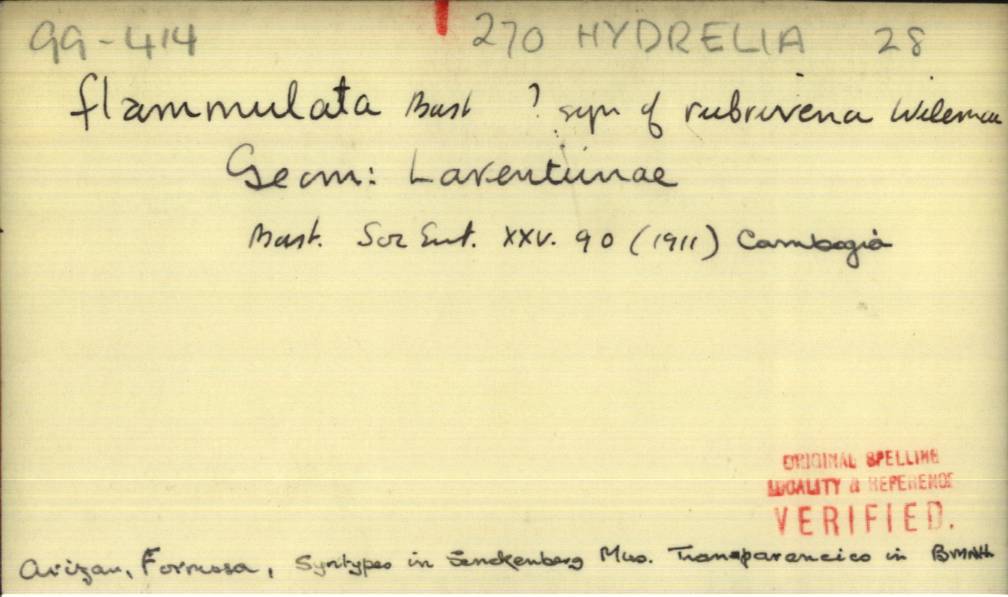 GG-414 270 HYDRELIA 28
flammulata Bast ? syn of rubrivena Wileman
Geom: Larentiinae
Bast. Soc Ent. XXV. 90 (1911) Cambogia
ORIGINAL SPELLING
LOCALITY & REFERENCE
VERIFIED.
Arizan, Formosa, Syntypes in Senckenberg Mus. Transparencies in BMNH